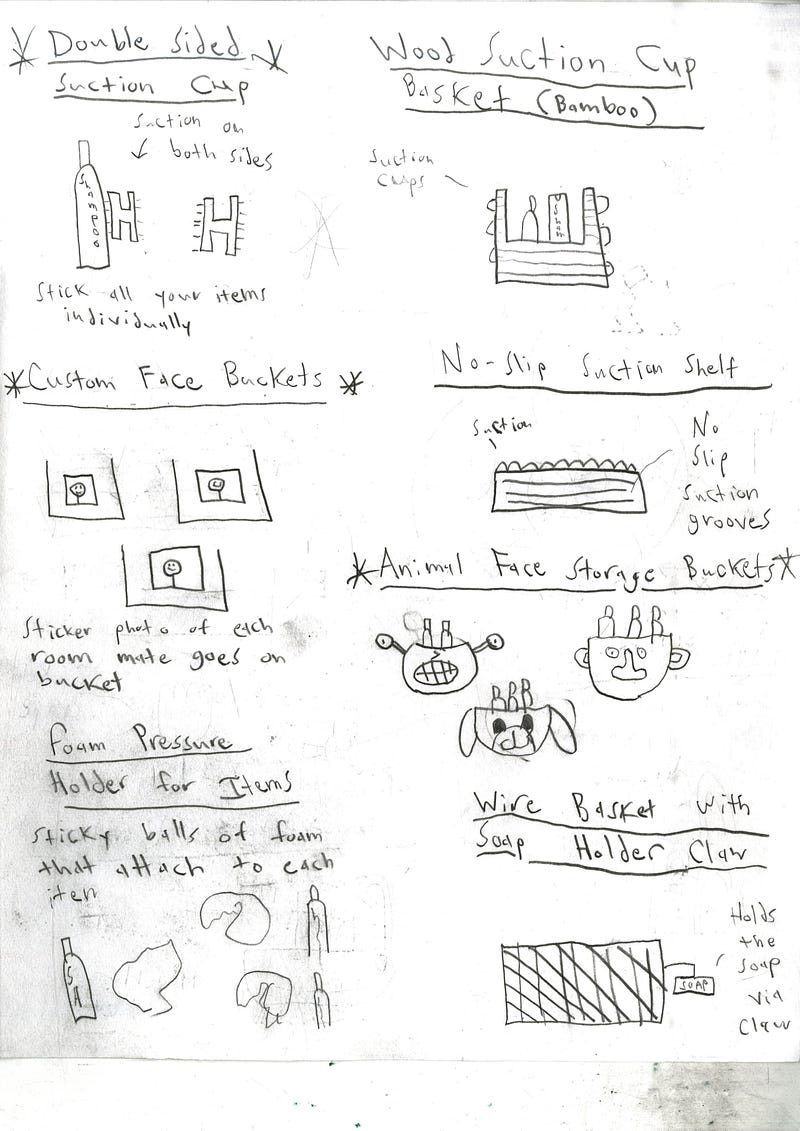 Double Sided
Suction Cup
Suction on
both sides
Shampoo
Stick all your items
individually
Wood Suction Cup
Basket (Bamboo)
Suction
Cups
Sham
Custom Face Buckets
Sticker photo of each
room mate goes on
bucket
No-Slip Suction Shelf
Suction
No
Slip
Suction
grooves
Animal Face Storage Buckets
Foam Pressure
Holder for Items
Sticky balls of foam
that attach to each
item
SH
Wire Basket with
Soap Holder Claw
Holds
the
soap
via
Claw
SOAP